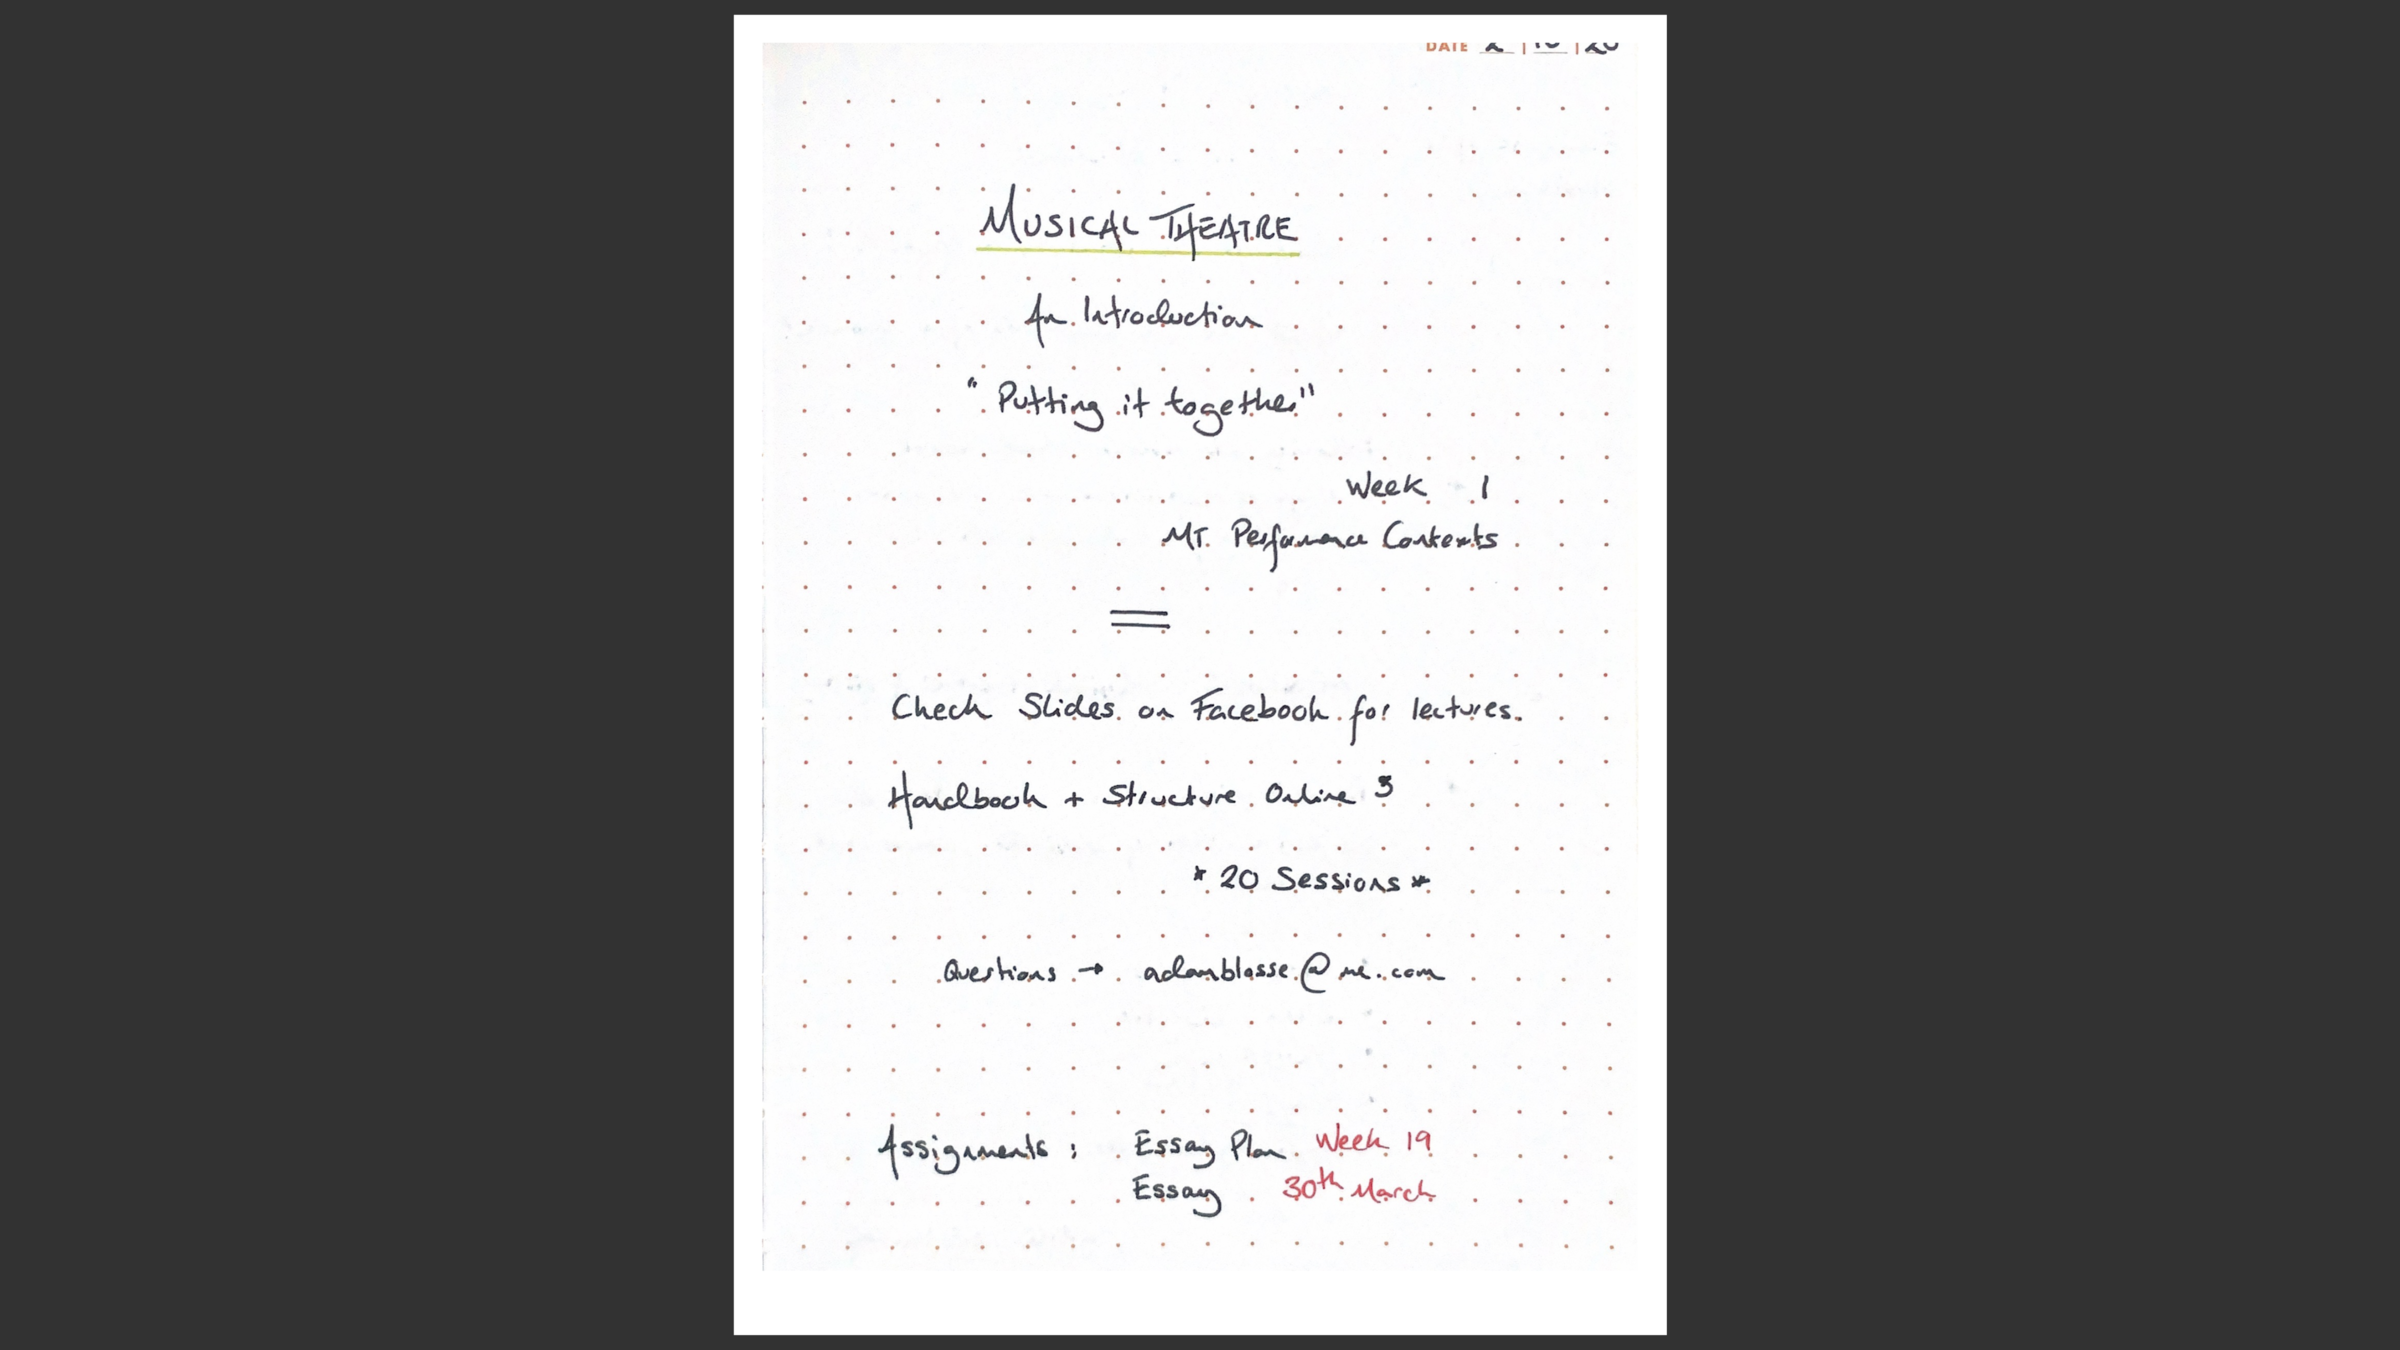 DATE 2 | 10 | 20
MUSICAL THEATRE
An Introduction
"Putting it together"
Week 1
MT. Performance Contexts
Check Slides on Facebook for lectures.
Handbook + Structure Online
* 20 Sessions *
Questions → adamblosse@me.com
Assignments : Essay Plan Week 19
Essay 30th March